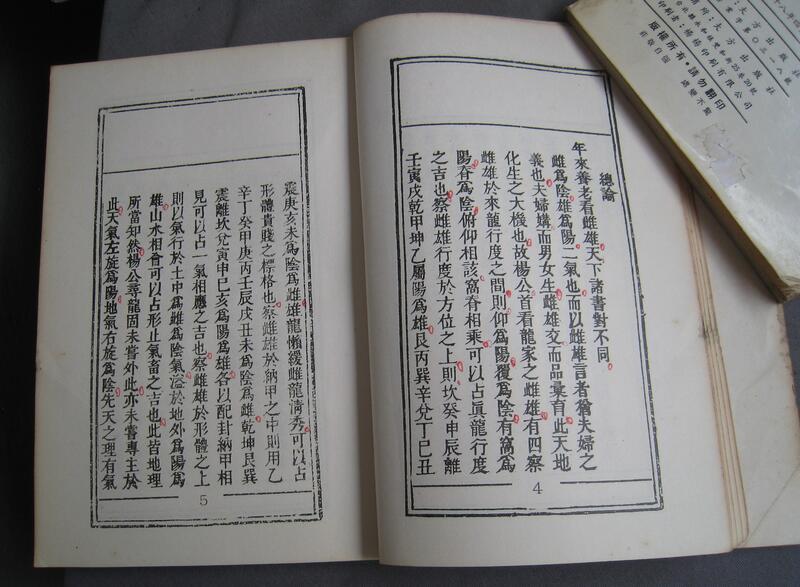 總論
年來養老看雌雄天下諸書對不同
雌爲陰雄爲陽二氣也而以雌雄言者猶夫婦之
義也夫婦媾而男女生雌雄交而品彙育此天地
化生之大機也故楊公首看龍家之雌雄有四察
雌雄於來龍行度之間則仰爲陽覆爲陰有窩爲
陽脊爲陰俯仰相該窩脊相乘可以占眞龍行度
之吉也察雌雄行度於方位之上則坎癸申辰離
壬寅戌乾甲坤乙屬陽爲雄艮丙巽辛兌丁巳丑
4
震庚亥未爲陰爲雌雄龍懶緩雌龍清秀可以占
形體貴賤之標格也察雌雄於納甲之中則用乙
辛丁癸甲庚丙壬辰戌丑未爲陰爲雌乾坤艮巽
震離坎兌寅申巳亥爲陽爲雄各以配封納甲相
見可以占一氣相應之吉也察雌雄於形體之上
則以氣行於土中爲雌爲陰氣溢於地外爲陽爲
雄山水相會可以占形止氣畜之吉也此皆地理
所當知然楊公尋龍固未嘗外此亦未嘗專主於
此天氣左旋爲陽地氣右旋爲陰先天之理有氣
5
大方出版社
印刷有限公司
版權所有・請勿翻印